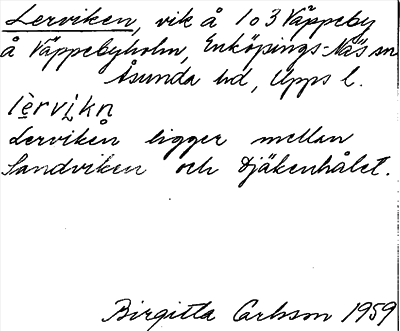 Lerviken, vik å 1 o 3 Väppeby
å Väppebyholm, Enköpings-Näs sn
Åsunda hd, Upps l.
lèrvikn
Lerviken ligger mellan
Sandviken och Djäkenhålet.
Birgitta Carlsson 1959